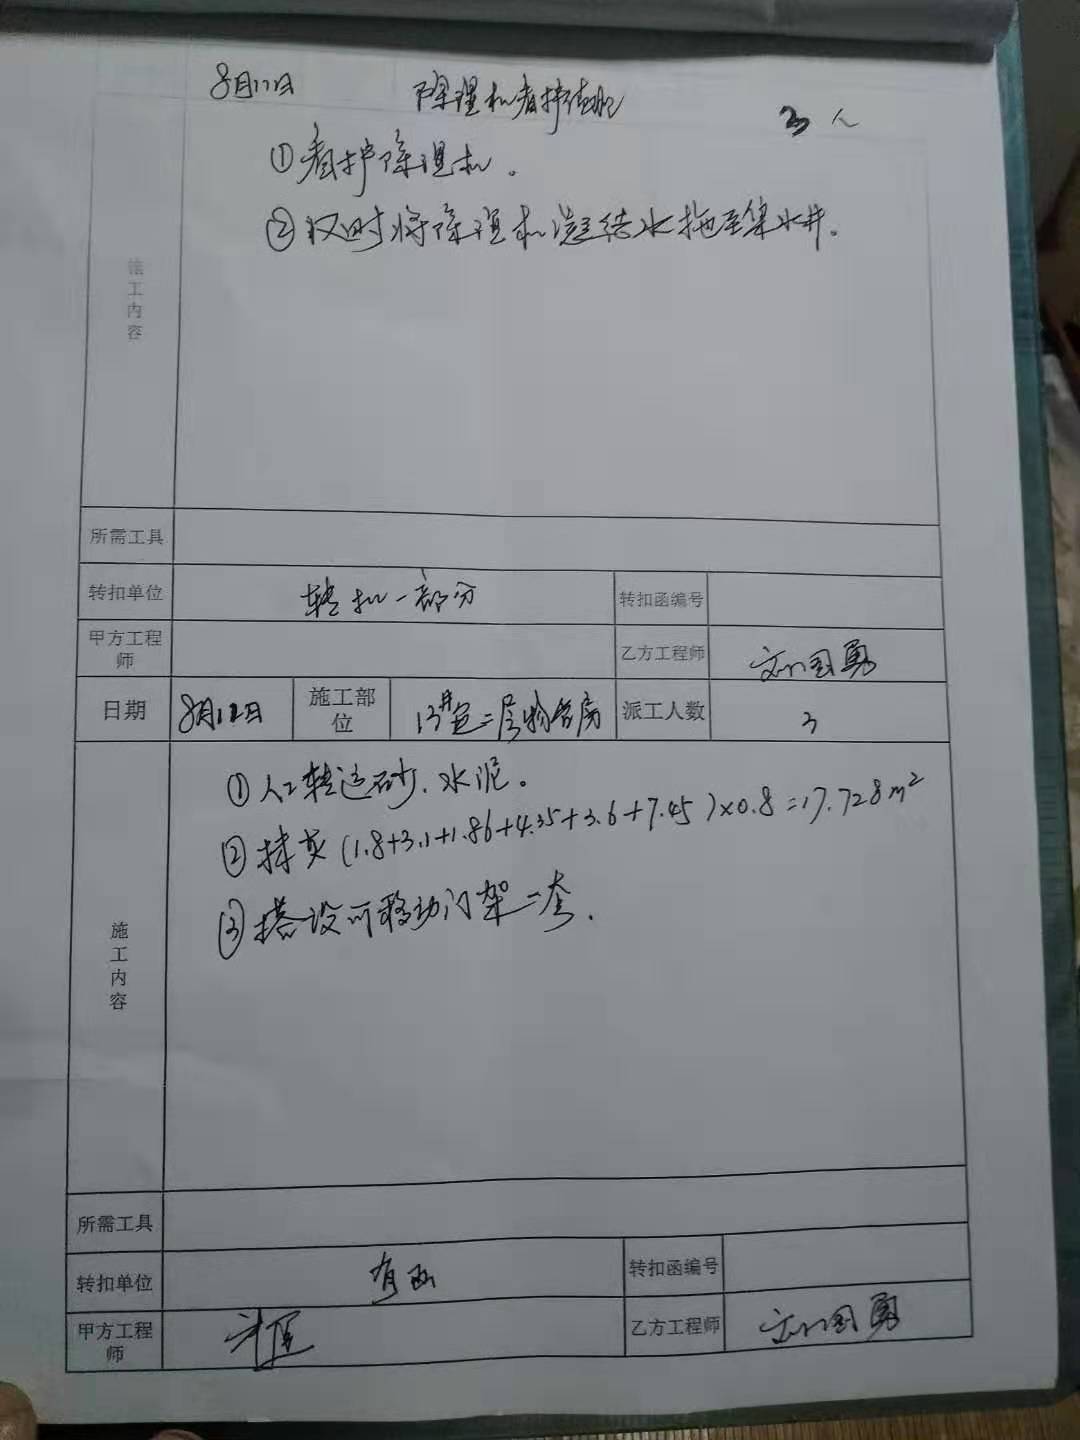 8月11日 除湿机看护值班 3人
①看护除湿机。
②及时将除湿机凝结水拖至集水井.
施工内容
所需工具
转扣单位 转扣一部分 转扣函编号
甲方工程师 乙方工程师 刘国勇
日期 8月12日 施工部位 13#二层物管房 派工人数 3
①人工转运砂、水泥。
②抹灰(1.8+3.1+1.86+4.35+3.6+7.45)×0.8=17.728m²
③搭设可移动门架二套.
施工内容
所需工具
转扣单位 有函 转扣函编号
甲方工程师 乙方工程师 刘国勇